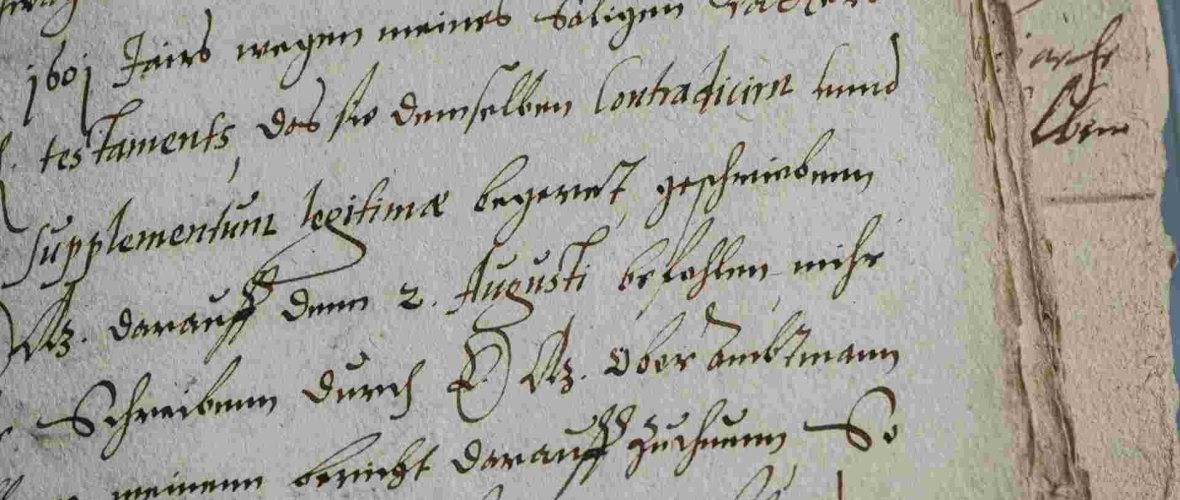 1601 Jairs wegen meines Säligen Vatters
testaments, das sie demselben Contradicirn vnnd
supplementum legitimæ begerest, geschriebenn
darauff denn 2. Augusti befohlen, mihr
Schreibenn durch E Ober Ambtmann
meinenn bericht darauff zuthuenn So